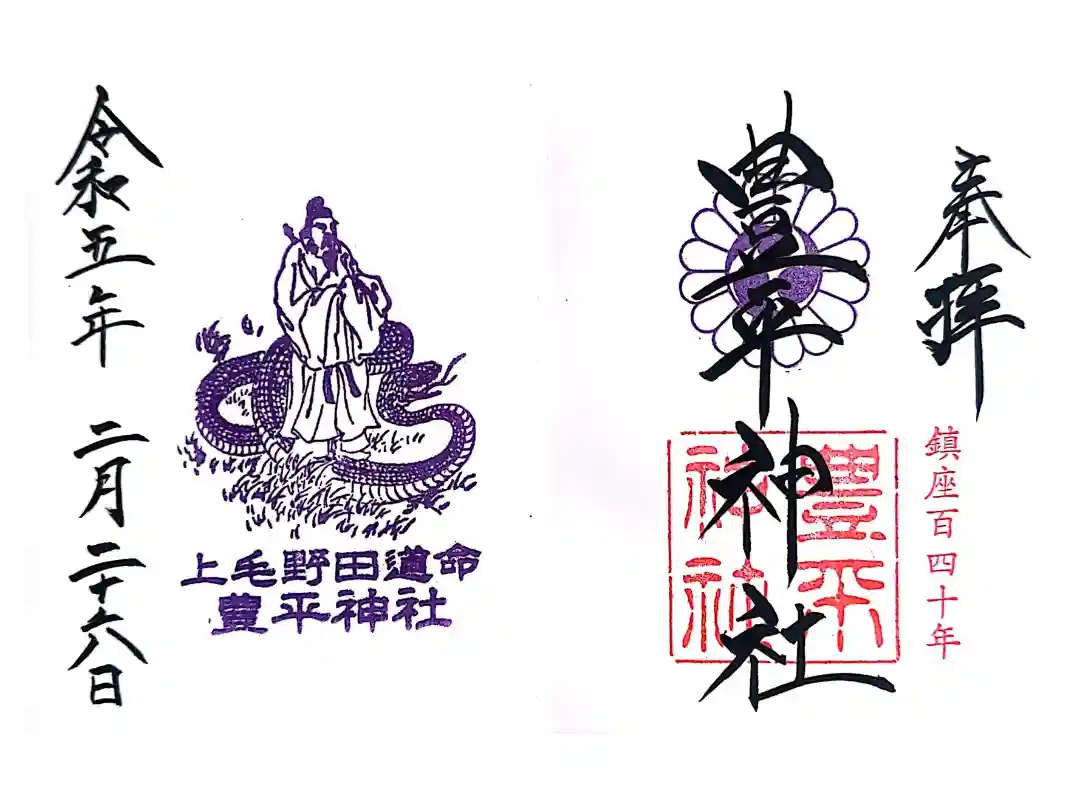 奉拝
鎮座百四十年
豊平神社
豊平
神社
上毛野田道命
豊平神社
令和五年 二月二十六日